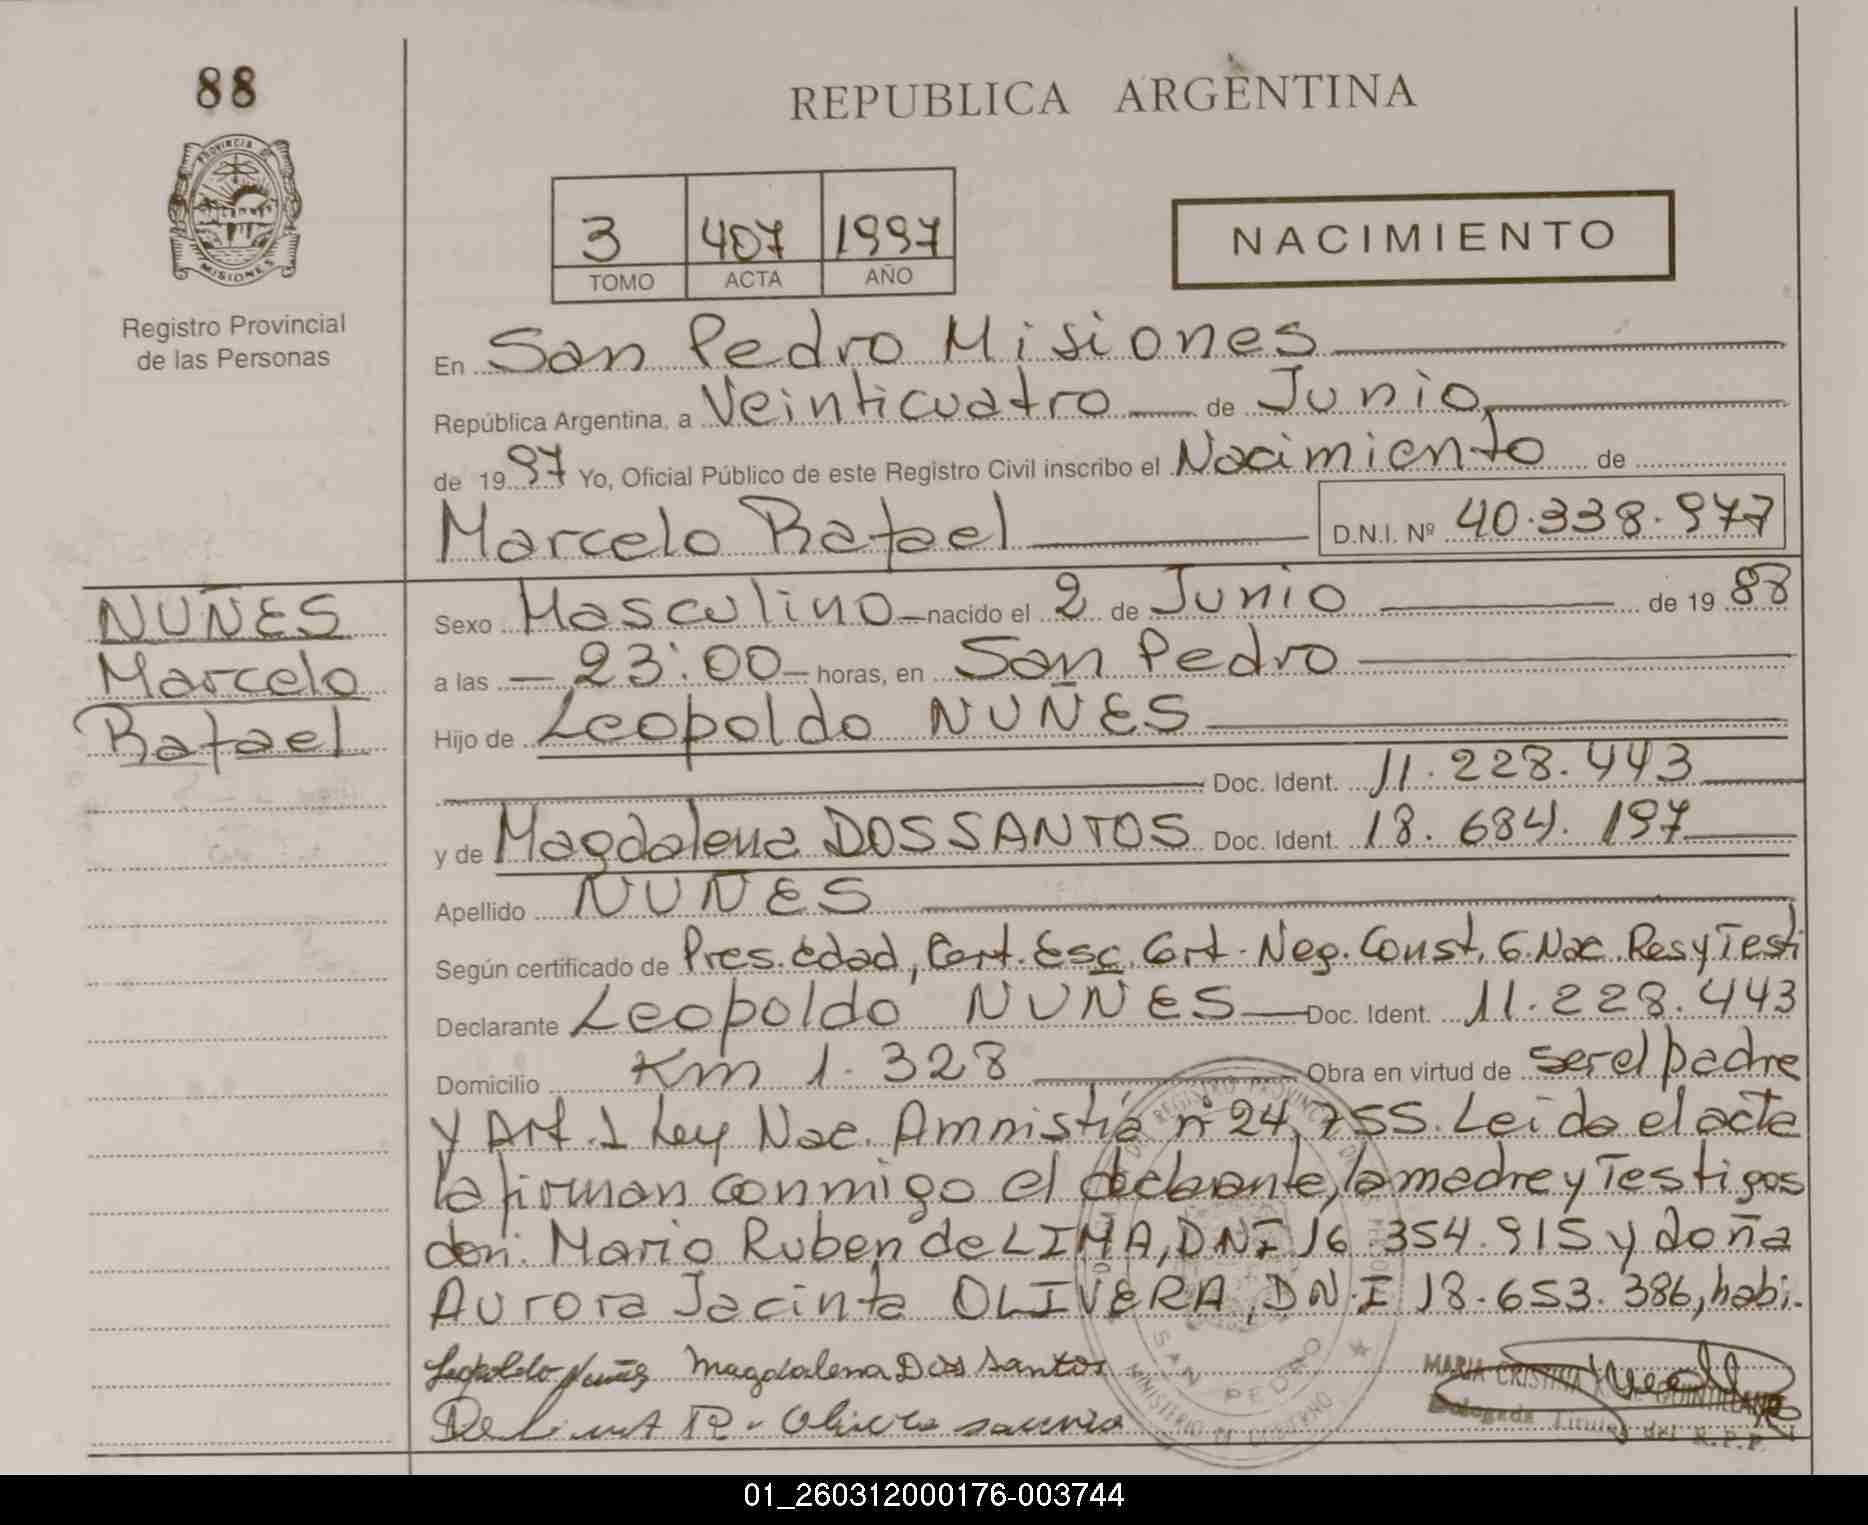 88
REPUBLICA ARGENTINA
PROVINCIA DE MISIONES
Registro Provincial
de las Personas
3 407 1997
TOMO ACTA AÑO
NACIMIENTO
En San Pedro Misiones
República Argentina, a Veinticuatro de Junio
de 1997 Yo, Oficial Público de este Registro Civil inscribo el Nacimiento de
Marcelo Rafael D.N.I. Nº 40.338.977
NUÑES
Marcelo
Rafael
Sexo Masculino nacido el 2 de Junio de 1988
a las 23:00 horas, en San Pedro
Hijo de Leopoldo NUÑES
Doc. Ident. 11.228.443
y de Magdalena DOS SANTOS Doc. Ident. 18.684.197
Apellido NUÑES
Según certificado de Pres. edad, Cert. Esc. Cert. Neg. Const. S. Nac. Res y Testi
Declarante Leopoldo NUÑES Doc. Ident. 11.228.443
Domicilio Km 1.328 Obra en virtud de ser el padre
y Art. 1 Ley Nac. Amnistia nº 24,755. Leida el acta
la firman conmigo el declarante, la madre y Testigos
don: Mario Ruben de LIMA, DNI 16.354.915 y doña
Aurora Jacinta OLIVERA, DN.I 18.653.386, habi.
Leopoldo Nuñes Magdalena Dos Santos
De Lima R - Olivera
MARIA CRISTINA
Delegada Titular del R.P.P.
REGISTRO PROVINCIAL DE
SAN PEDRO
MINISTERIO DE GOBIERNO
01_260312000176-003744